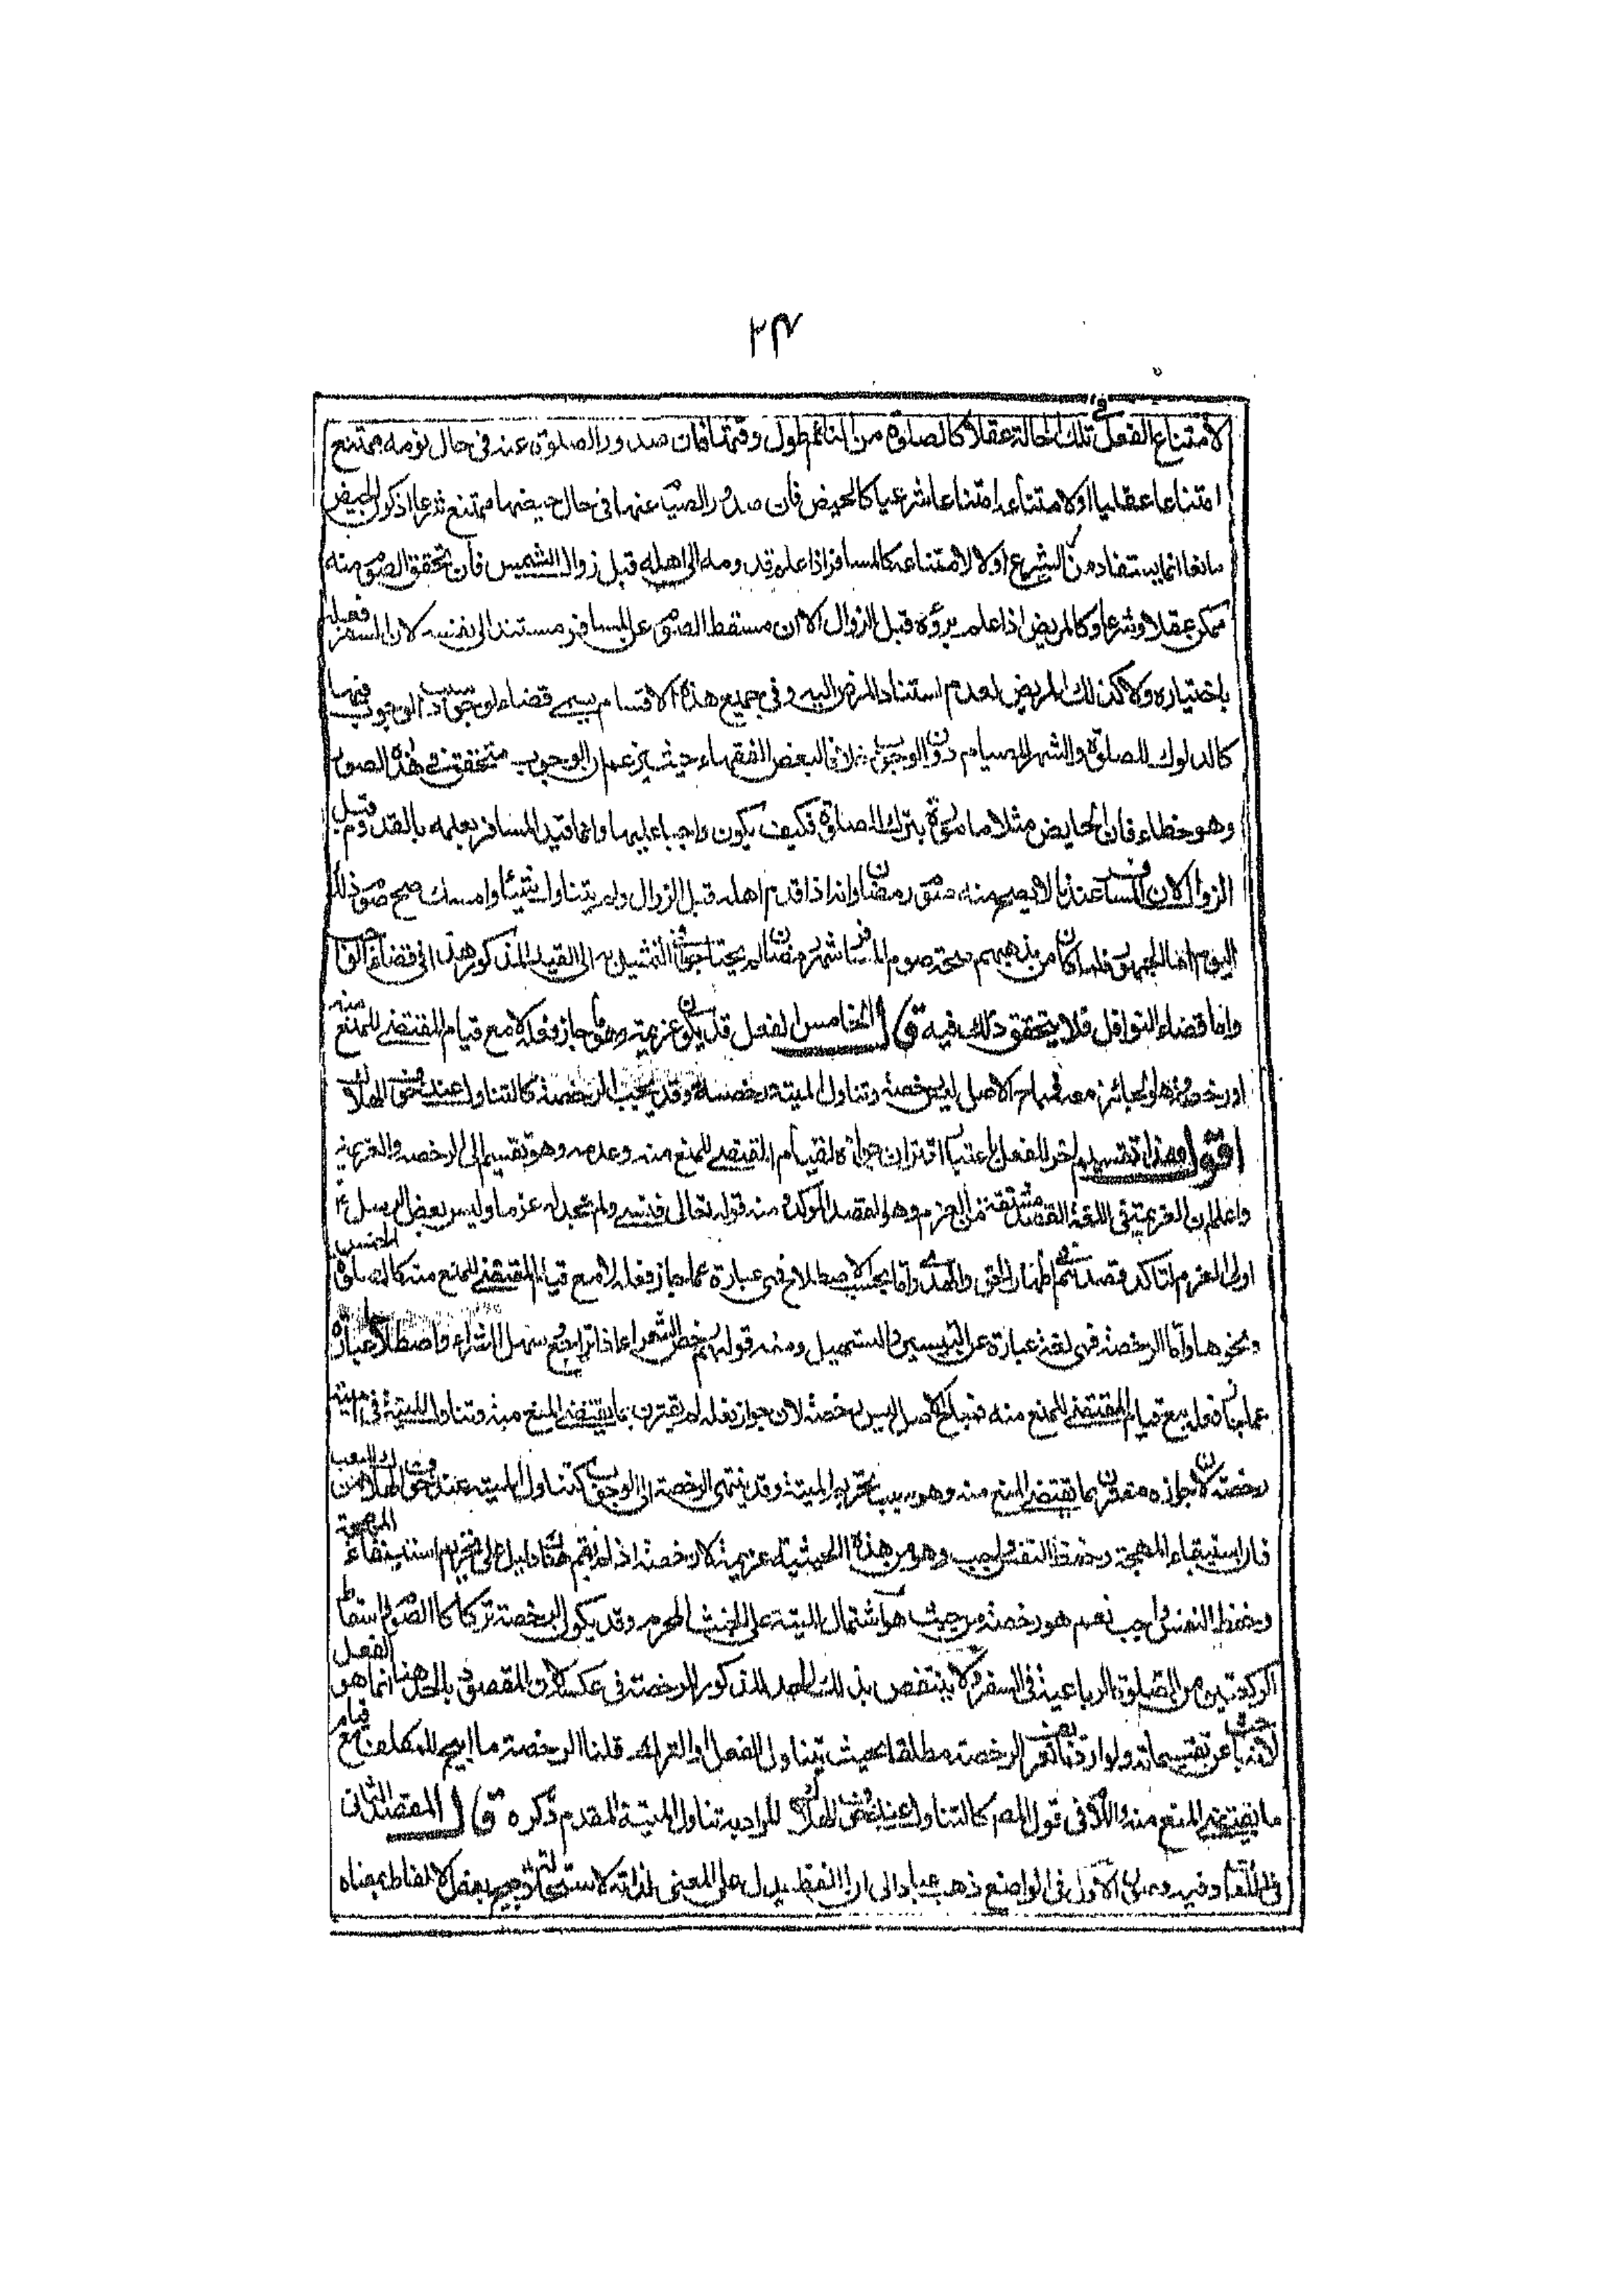 ٢٣
لامتناع الفعل في تلك الحالة عقلا كالصلوة من النائم طول وقتها فان صدور الصلوة عنه في حال نومه ممتنع
امتناعا عقليا اولا متناعه امتناعا شرعيا كالحيض فان صدور الصيام عنها في حال حيضها ممتنع شرعا اذ كون الحيض
مانعا انما يستفاد من الشرع او لا لامتناعه كالمسافر اذا علم قدومه الى اهله قبل زوال الشمس فان تحقق الصوم منه
ممكن عقلا وشرعا وكالمريض اذا علم برؤه قبل الزوال الا ان مسقط الصوم عن المسافر مستند الى نفسه لان السفر فعله
باختياره ولا كذلك المريض لعدم استناد المرض اليه وفي جميع هذه الاقسام يسمى قضاء لوجود سبب الوجوب فيها
كالدلوك للصلوة والشهر للصيام دون الوجوب خلافا لبعض الفقهاء حيث زعم ان الوجوب متحقق في هذه الصور
وهو خطاء فان الحايض مثلا مامورة بترك الصلوة فكيف يكون واجبا عليها وانما قيد المسافر بعلمه بالقدوم قبل
الزوال لان المسافر عندنا لا يصح منه صوم رمضان وانه اذا قدم اهله قبل الزوال ولم يتناول شيئا وامسك صح صوم ذلك
اليوم اما الجمهور فلما كان من مذهبهم صحة صوم المسافر شهر رمضان لم يحتاجوا في التمثيل به الى القيد المذكور هذا في قضاء الفرائض
واما قضاء النوافل فلا يتحقق ذلك فيه قال الخامس الفعل قد يكون عزيمة وهو ما جاز فعله لا مع قيام المقتضي للمنع منه
او رخصة وهو الجائز معه فمباح الاصل ليس رخصة وتناول الميتة رخصة وقد يجب الرخصة كالتناول عند خوف الهلاك
اقول هذا تقسيم اخر للفعل باعتبار اقتران جوازه لقيام المقتضي للمنع منه وعدمه وهو تقسيم الى الرخصة والعزيمة
واعلم ان العزيمة في اللغة القصد مشتقة من العزم وهو القصد المؤكد ومنه قوله تعالى فنسي ولم نجد له عزما وليس بعض الرسل
اولى العزم لتاكد قصدهم اظهار الحق واما بحسب الاصطلاح فهي عبارة عما جاز فعله لا مع قيام المقتضي للمنع منه كالصلوة الخمس
ونحوها واما الرخصة فهي لغة عبارة عن التيسير والتسهيل ومنه قولهم رخص السعر اذا تراجع وسهل الشراء واصطلاحا عبارة
عما جاز فعله مع قيام المقتضي للمنع منه فمباح الاصل ليس رخصة لان جواز فعله لم يقترن بما يقتضي المنع منه وتناول الميتة
رخصة لان جوازه مقترن بما يقتضي المنع منه وهو سبب تحريم الميتة وقد ينتهي الرخصة الى الوجوب كتناول الميتة عند خوف الهلاك من
فان استبقاء المهجة وحفظ النفس واجب وهو من هذه الحيثية عزيمة لا رخصة اذ لم يقم هنا دليل على تحريم استبقاء المهجة
وحفظ النفس واجب نعم هو رخصة من حيث اشتمال الميتة على الخبث المحرم وقد يكون الرخصة تركا كالصوم واسقاط
الركعتين من الصلوة الرباعية في السفر ولا ينتقض بذلك الحد المذكور للرخصة في عكسه لان المقصود بالحد هنا انما هو الفعل
لانه باحث عن تقسيماته ولو اردنا تعريف الرخصة مطلقا بحيث يتناول الفعل والترك قلنا الرخصة ما ابيح للمكلف مع قيام
ما يقتضي المنع منه واللام في قول المصـ كالتناول عند خوف الهلاك المراد به تناول الميتة المقدم ذكره قال المقصد الثاني
في اللغات وفيه فصول الاول في الواضع ذهب عباد الى ان اللفظ يدل على المعنى لذاته لاستحالة ترجيح بعض الالفاظ بمعناه